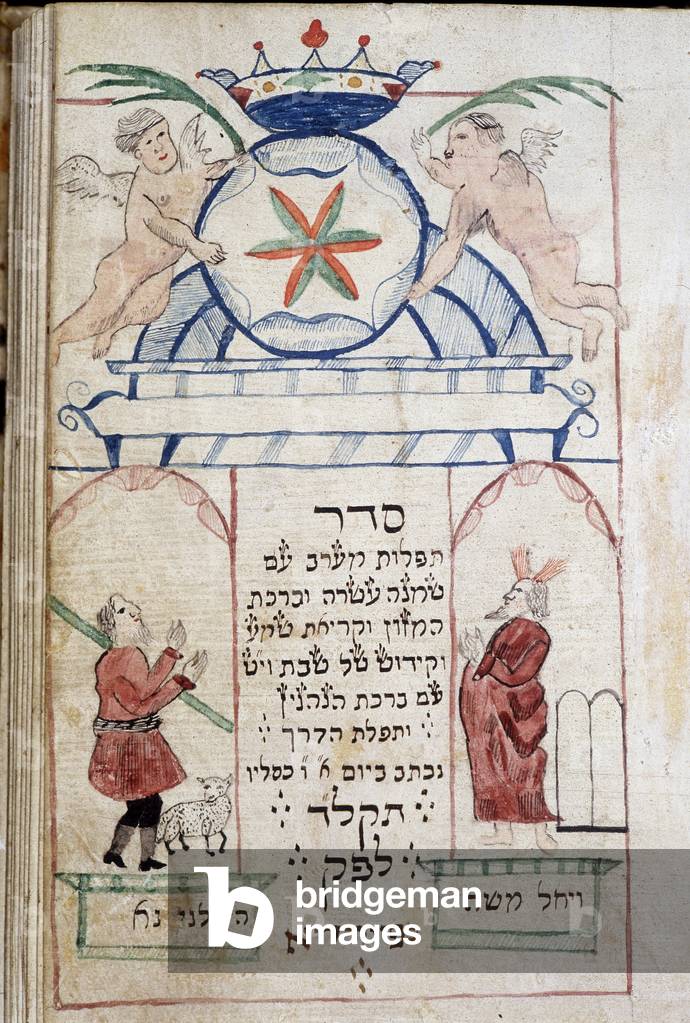 סדר
תפלות מערב עם
שמנה עשרה וברכת
המזון וקריאת שמע
וקידוש של שבת וי״ט
עם ברכת הנהנין
ותפלת הדרך
נכתב ביום א׳ ו׳ כסליו
תקלד
לפק
ויחל משה
נא
bridgeman
images